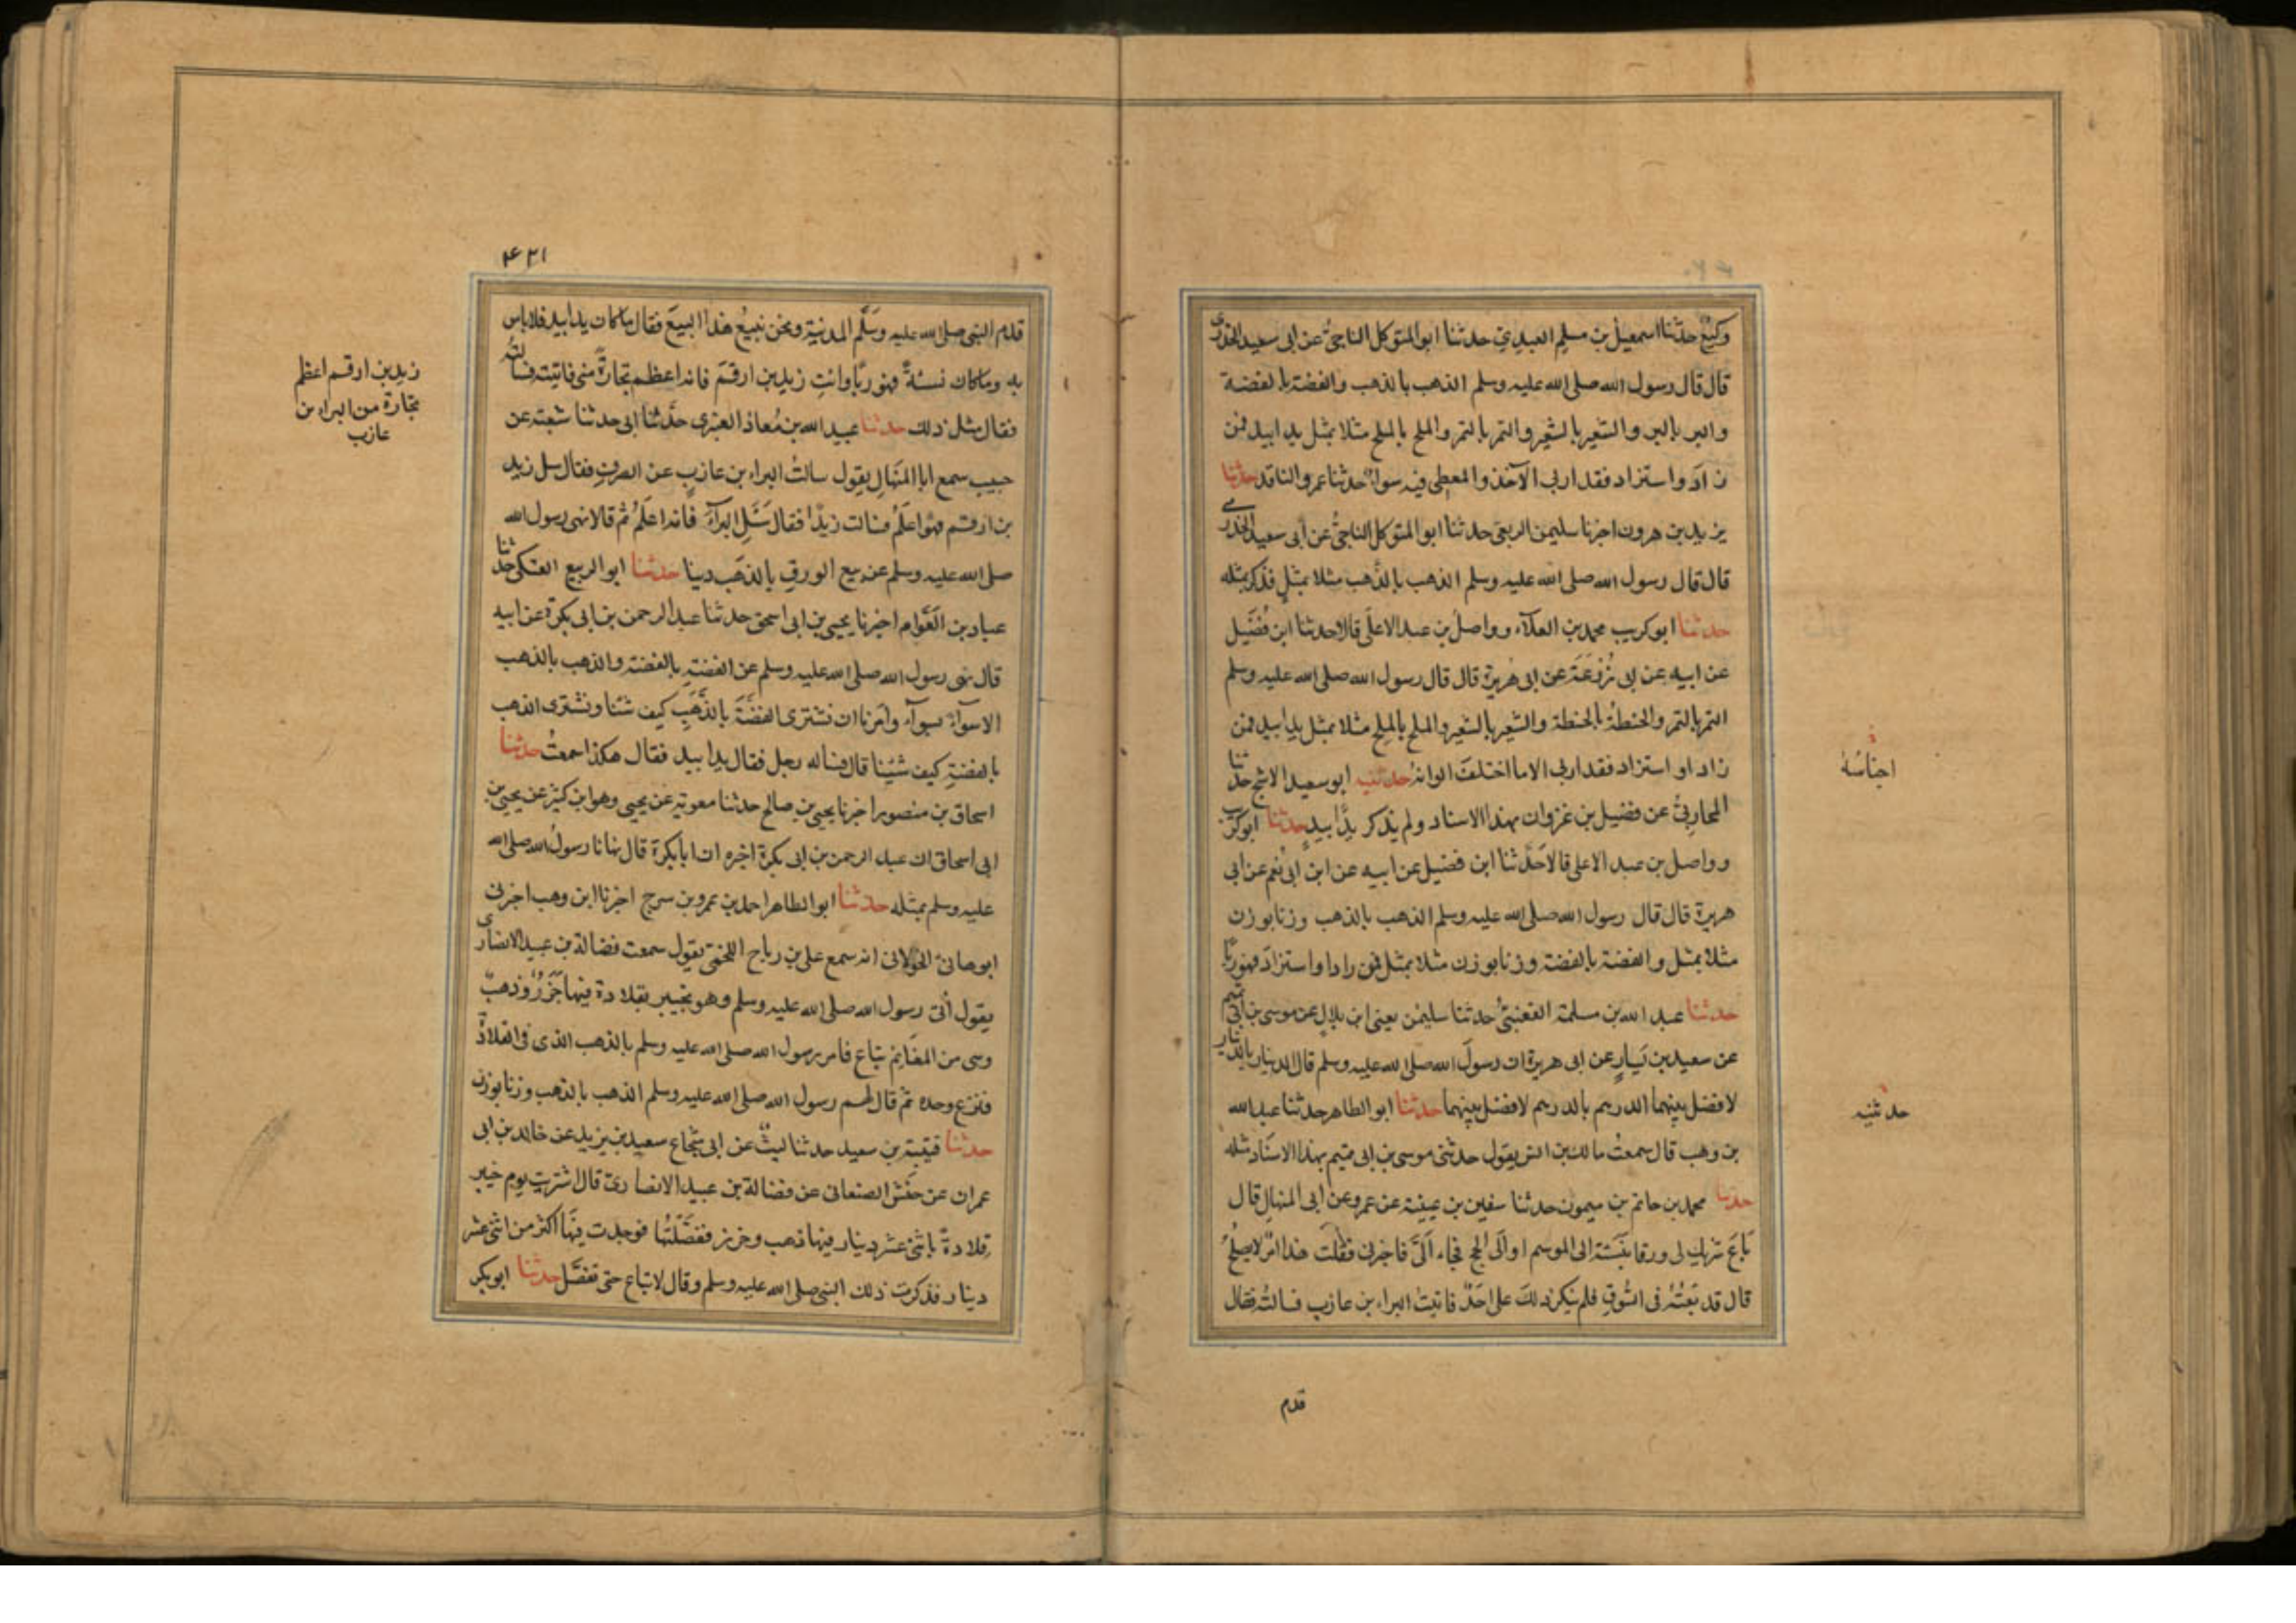 وكيع حدثنا اسمعيل بن مسلم العبدي حدثنا ابو المتوكل الناجي عن ابى سعيد الخدرى
قال قال رسول الله صلى الله عليه وسلم الذهب بالذهب والفضة بالفضة
والبر بالبر والشعير بالشعير والتمر بالتمر والملح بالملح مثلا بمثل يدا بيد فمن
زاد واستزاد فقد اربى الآخذ والمعطى فيه سواء حدثنا عمرو الناقد حدثنا
يزيد بن هرون اخبرنا سليمن الربعى حدثنا ابو المتوكل الناجي عن ابى سعيد الخدرى
قال قال رسول الله صلى الله عليه وسلم الذهب بالذهب مثلا بمثل فذكر بمثله
حدثنا ابو كريب محمد بن العلاء وواصل بن عبد الاعلى قالا حدثنا ابن فضيل
عن ابيه عن ابى زرعة عن ابى هريرة قال قال رسول الله صلى الله عليه وسلم
التمر بالتمر والحنطة بالحنطة والشعير بالشعير والملح بالملح مثلا بمثل يدا بيد فمن
زاد او استزاد فقد اربى الا ما اختلف الوانه حدثنيه ابو سعيد الاشج حدثنا
المحاربى عن فضيل بن غزوان بهذا الاسناد ولم يذكر يدا بيد حدثنا ابو كريب
وواصل بن عبد الاعلى قالا حدثنا ابن فضيل عن ابيه عن ابن ابى نعم عن ابى
هريرة قال قال رسول الله صلى الله عليه وسلم الذهب بالذهب وزنا بوزن
مثلا بمثل والفضة بالفضة وزنا بوزن مثلا بمثل فمن زادا واستزاد فهو ربا
حدثنا عبد الله بن مسلمة القعنبى حدثنا سليمن يعنى ابن بلال عن موسى بن ابى تميم
عن سعيد بن يسار عن ابى هريرة ان رسول الله صلى الله عليه وسلم قال الدينار بالدينار
لا فضل بينهما الدرهم بالدرهم لا فضل بينهما حدثنا ابو الطاهر حدثنا عبد الله
بن وهب قال سمعت مالك بن انس يقول حدثنى موسى بن ابى تميم بهذا الاسناد مثله
حدثنا محمد بن حاتم بن ميمون حدثنا سفين بن عيينة عن عمرو عن ابى المنهال قال
باع شريك لى ورقا بنسئة الى الموسم او الى الحج فجاء الى فاخبرنى فقلت هذا امر لا يصلح
قال قد بعته فى السوق فلم ينكر ذلك على احد فاتيت البراء بن عازب فسالته فقال
قدم
اجناسه
حدثنيه
٤٢١
قدم النبى صلى الله عليه وسلم المدنية ونحن نبيع هذا البيع فقال ماكان يدا بيد فلاباس
به وماكان نسئة فهو ربا وائت زيد بن ارقم فانه اعظم تجارة منى فاتيته فسالته
فقال مثل ذلك حدثنا عبيد الله بن معاذ العنبرى حدثنا ابى حدثنا شعبة عن
حبيب سمع ابا المنهال يقول سالت البراء بن عازب عن الصرف فقال سل زيد
بن ارقم فهو اعلم فسالت زيدا فقال سل البراء فانه اعلم ثم قالا نهى رسول الله
صلى الله عليه وسلم عن بيع الورق بالذهب دينا حدثنا ابو الربيع العتكى حدثنا
عباد بن العوام اخبرنا يحيى بن ابى اسحق حدثنا عبد الرحمن بن ابى بكرة عن ابيه
قال نهى رسول الله صلى الله عليه وسلم عن الفضة بالفضة والذهب بالذهب
الا سواء بسواء وامرنا ان نشترى الفضة بالذهب كيف شئنا ونشترى الذهب
بالفضة كيف شئنا قال فساله رجل فقال يدا بيد فقال هكذا سمعت حدثنا
اسحاق بن منصور اخبرنا يحيى بن صالح حدثنا معوية عن يحيى وهو ابن كثير عن يحيى بن
ابى اسحاق ان عبد الرحمن بن ابى بكرة اخبره ان ابا بكرة قال نهانا رسول الله صلى الله
عليه وسلم بمثله حدثنا ابو الطاهر احمد بن عمرو بن سرح اخبرنا ابن وهب اخبرنى
ابو هانئ الخولانى انه سمع على بن رباح اللخمى يقول سمعت فضالة بن عبيد الانصارى
يقول أتى رسول الله صلى الله عليه وسلم وهو بخيبر بقلادة فيها خرز وذهب
وهى من المغانم تباع فامر رسول الله صلى الله عليه وسلم بالذهب الذى فى القلادة
فنزع وحده ثم قال لهم رسول الله صلى الله عليه وسلم الذهب بالذهب وزنا بوزن
حدثنا قتيبة بن سعيد حدثنا ليث عن ابى شجاع سعيد بن يزيد عن خالد بن ابى
عمران عن حنش الصنعانى عن فضالة بن عبيد الانصارى قال اشتريت يوم خيبر
قلادة باثنى عشر دينار فيها ذهب وخرز ففصلتها فوجدت فيها اكثر من اثنى عشر
دينار فذكرت ذلك النبى صلى الله عليه وسلم وقال لاتباع حتى تفصل حدثنا ابو بكر
زيد بن ارقم اعظم
تجارة من البراء بن
عازب